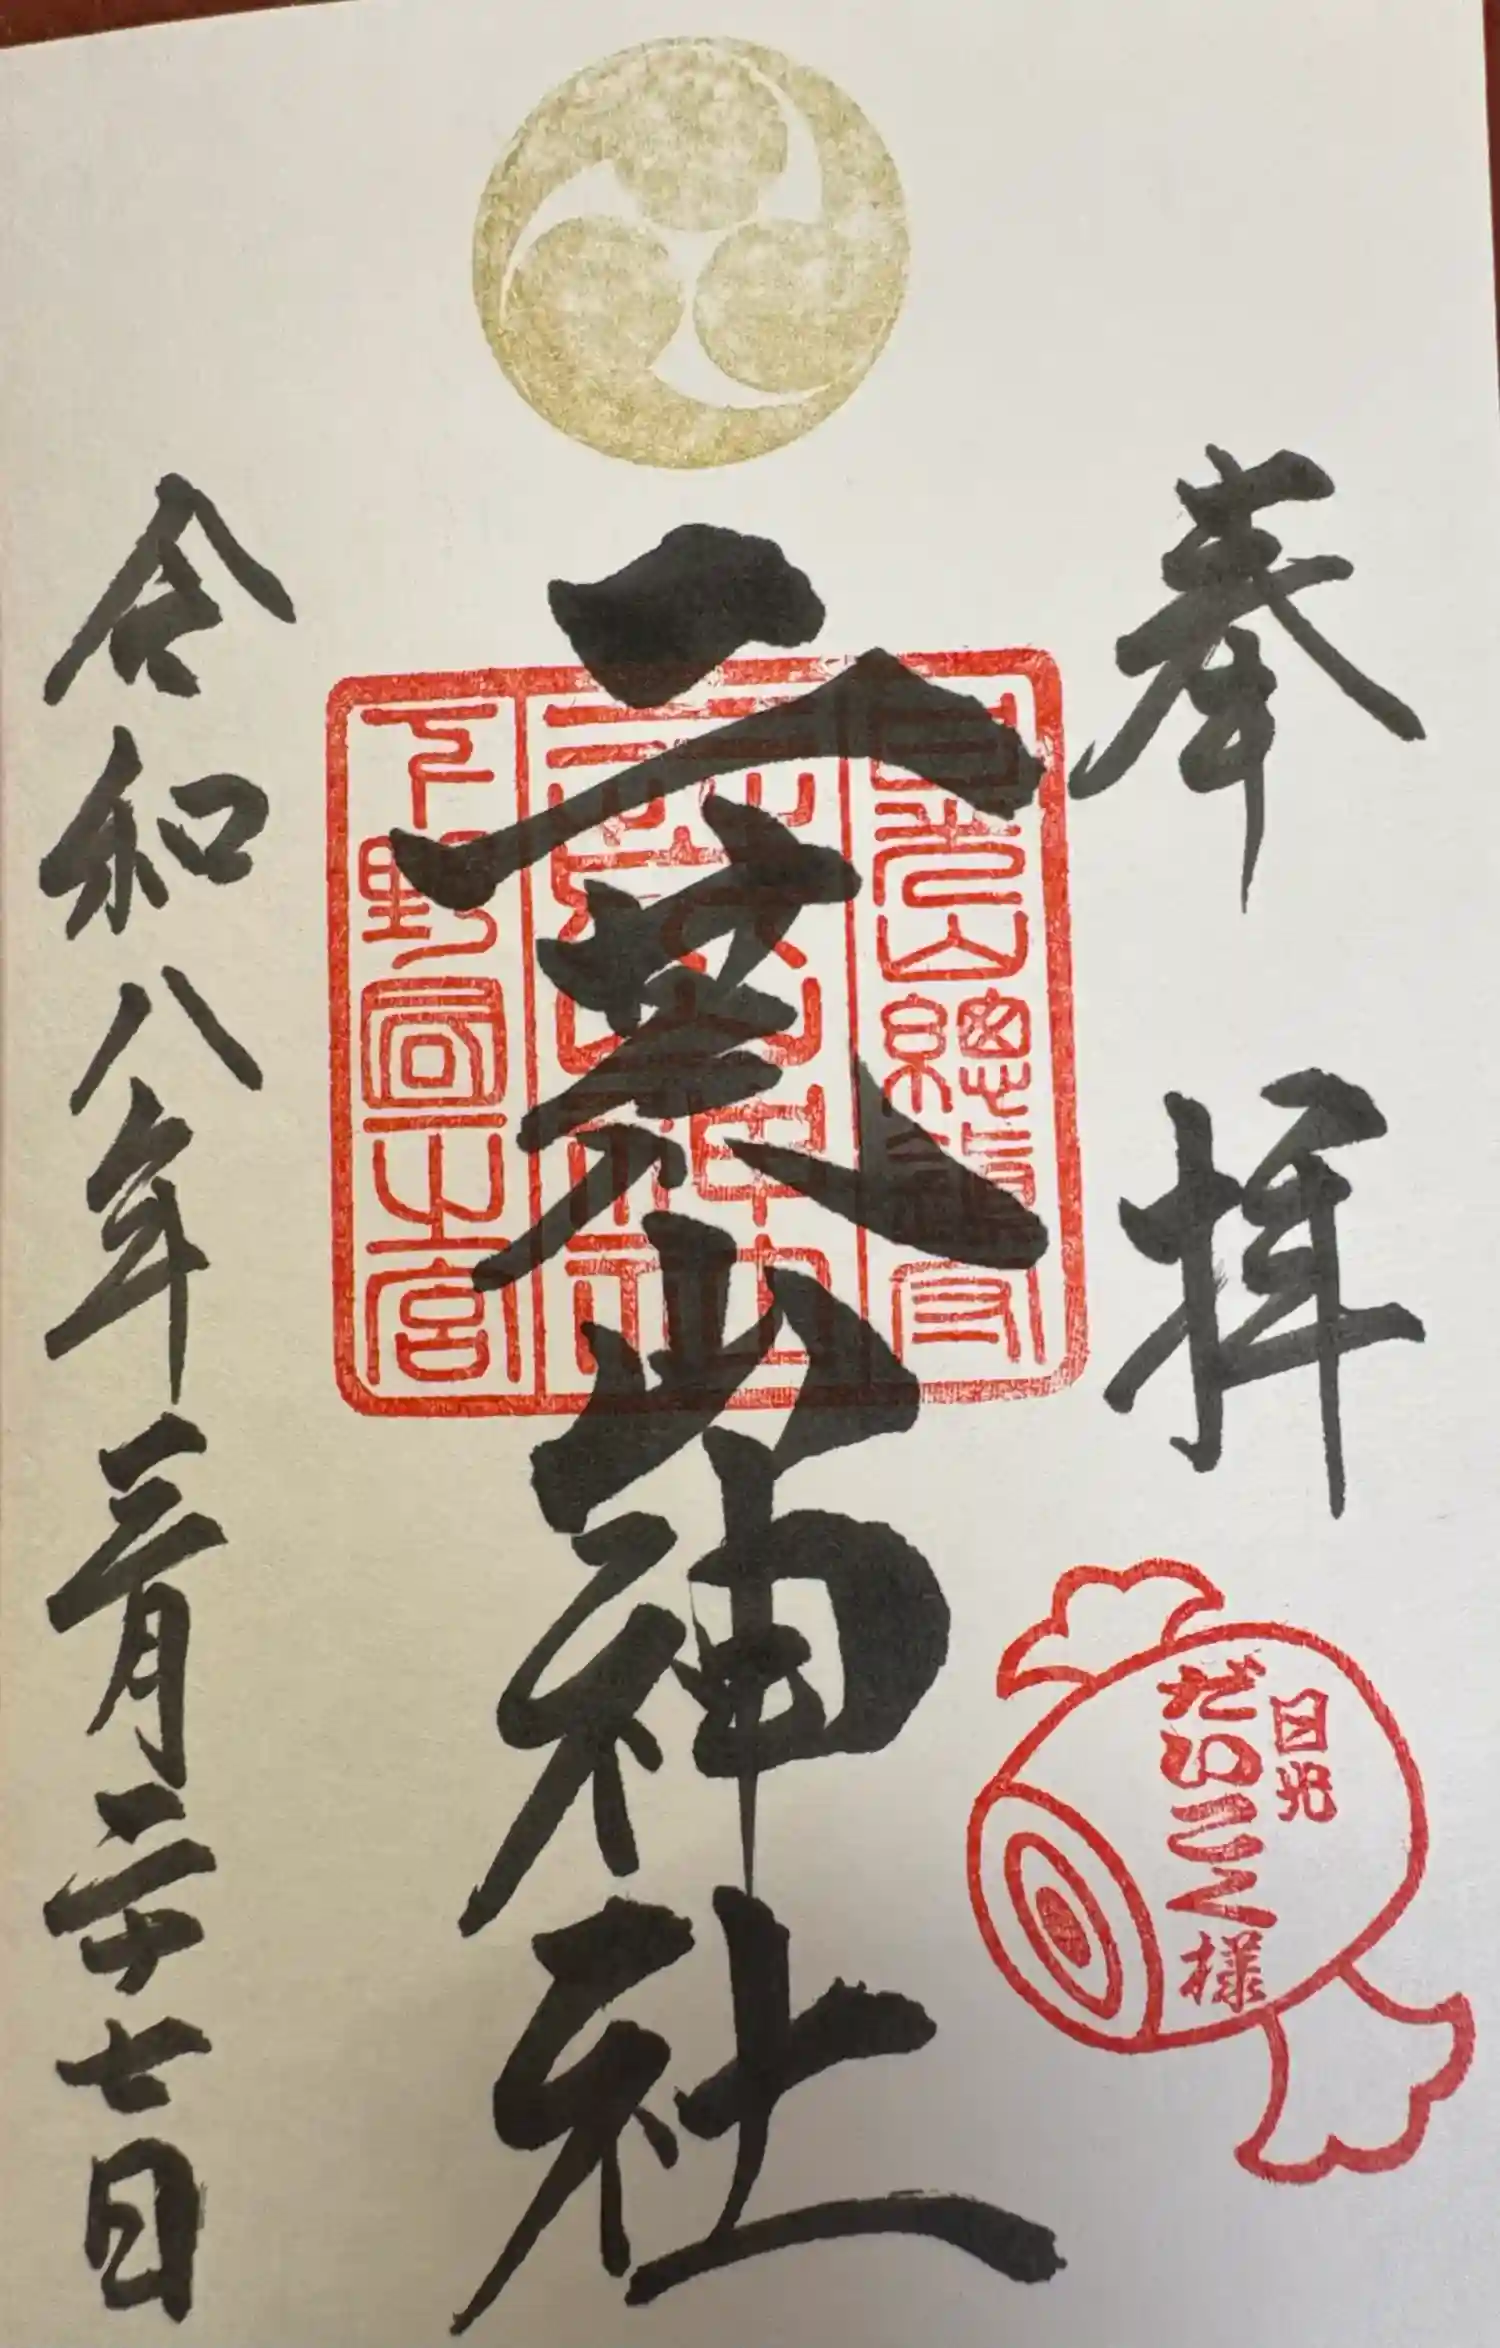 奉拝
日光
だいこく様
日光山總鎮守
二荒山神社
下野國一之宮
令和八年三月二十七日